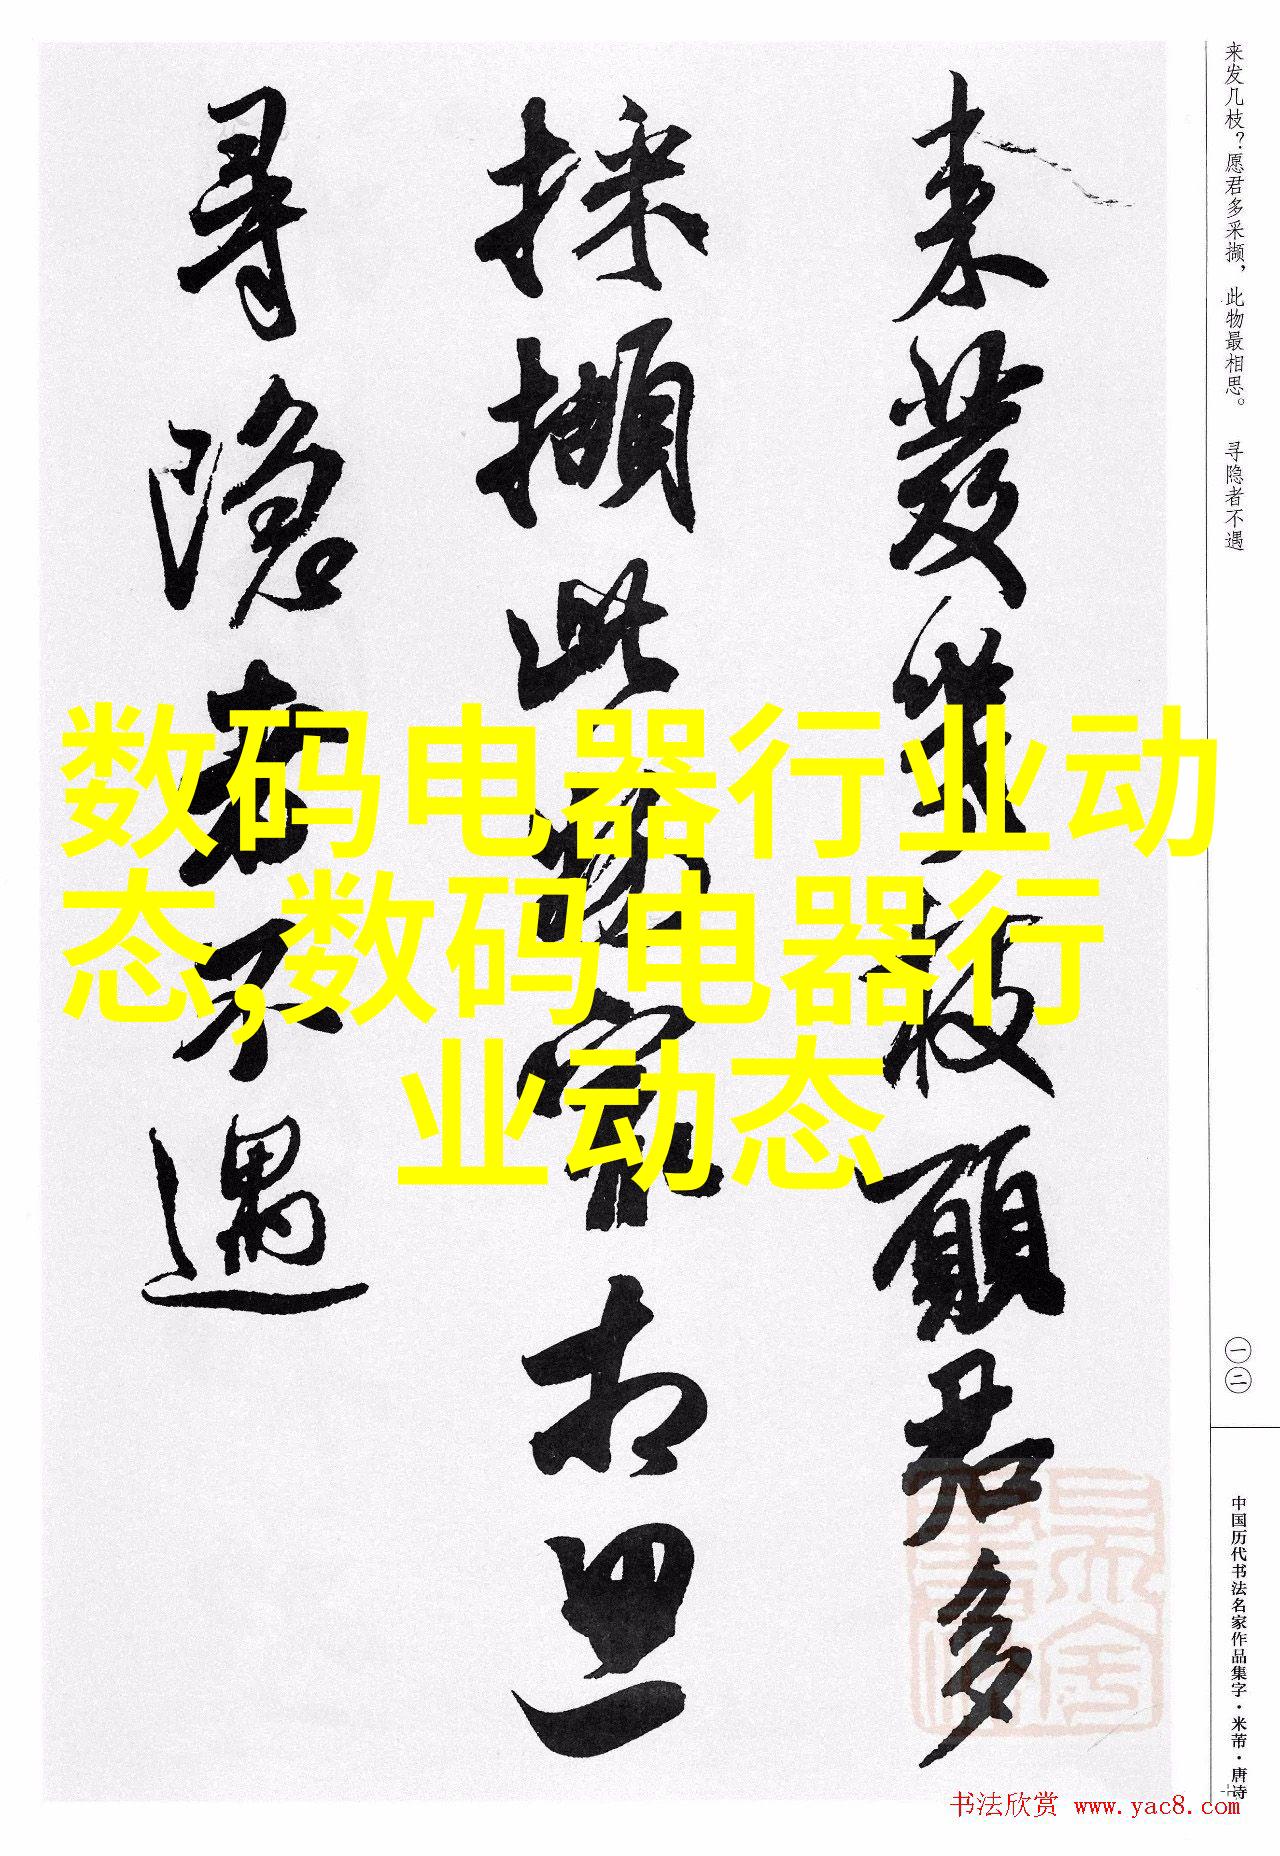 来发几枝？愿君多采撷，此物最相思。　寻隐者不遇
一二
中国历代书法名家作品集字·米芾·唐诗
来發幾枝願君多
採擷此物最相思
尋隱者不遇
数码电器行业动
态,数码电器行
业动态
书法欣赏 www.yac8.com